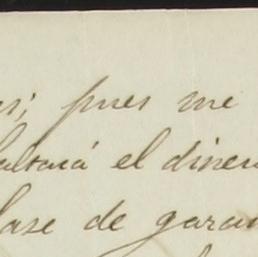 es; pues me
altará el diner
lase de garan